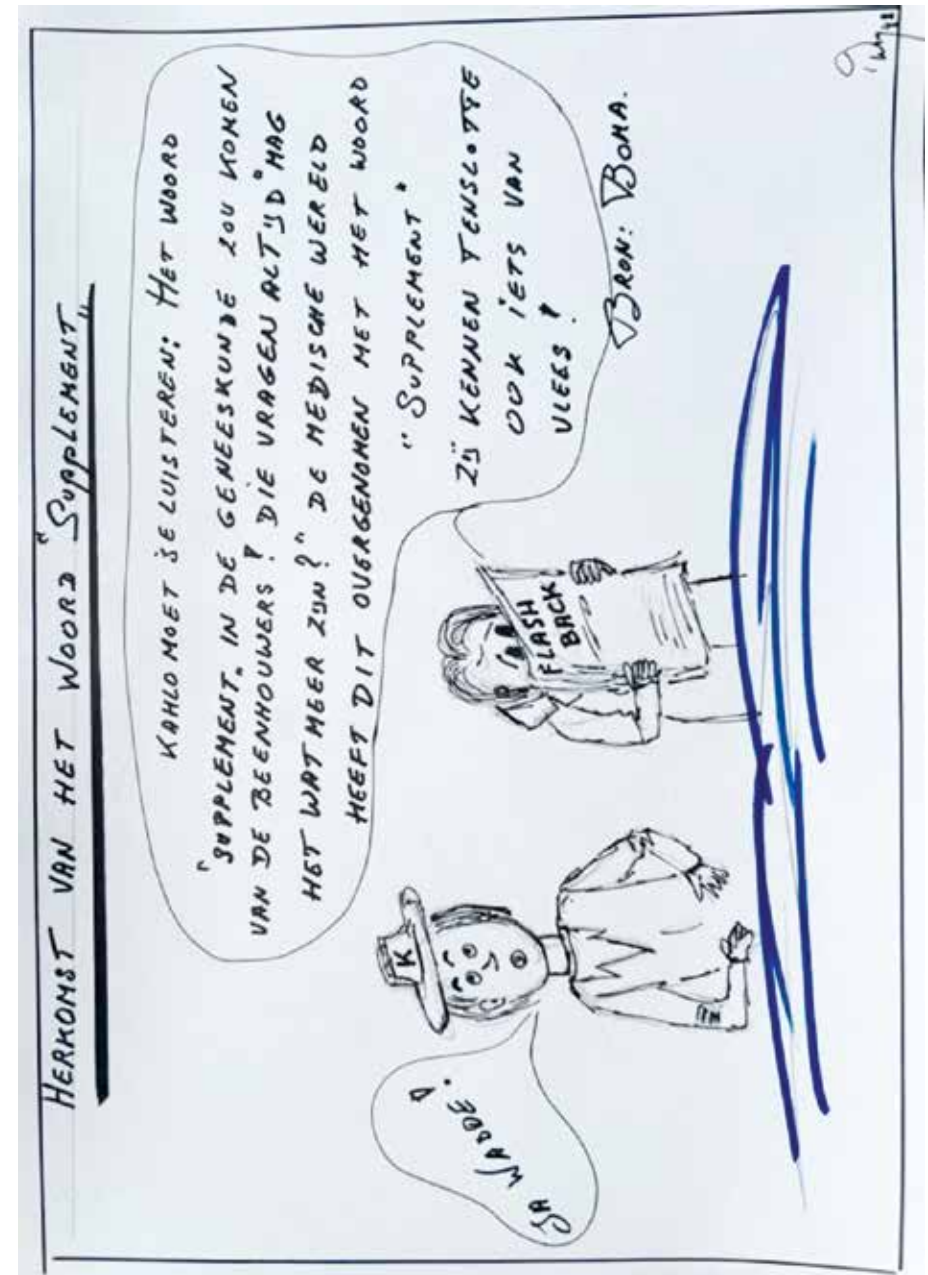 HERKOMST VAN HET WOORD "SUPPLEMENT"
KAHLO MOET JE LUISTEREN: HET WOORD
"SUPPLEMENT" IN DE GENEESKUNDE ZOU KOMEN
VAN DE BEENHOUWERS! DIE VRAGEN ALTIJD "MAG
HET WAT MEER ZIJN?" DE MEDISCHE WERELD
HEEFT DIT OVERGENOMEN MET HET WOORD
"SUPPLEMENT"
ZIJ KENNEN TENSLOTTE
OOK IETS VAN
VLEES!
BRON: BOMA.
JA WADDE!
K
FLASH
BACK